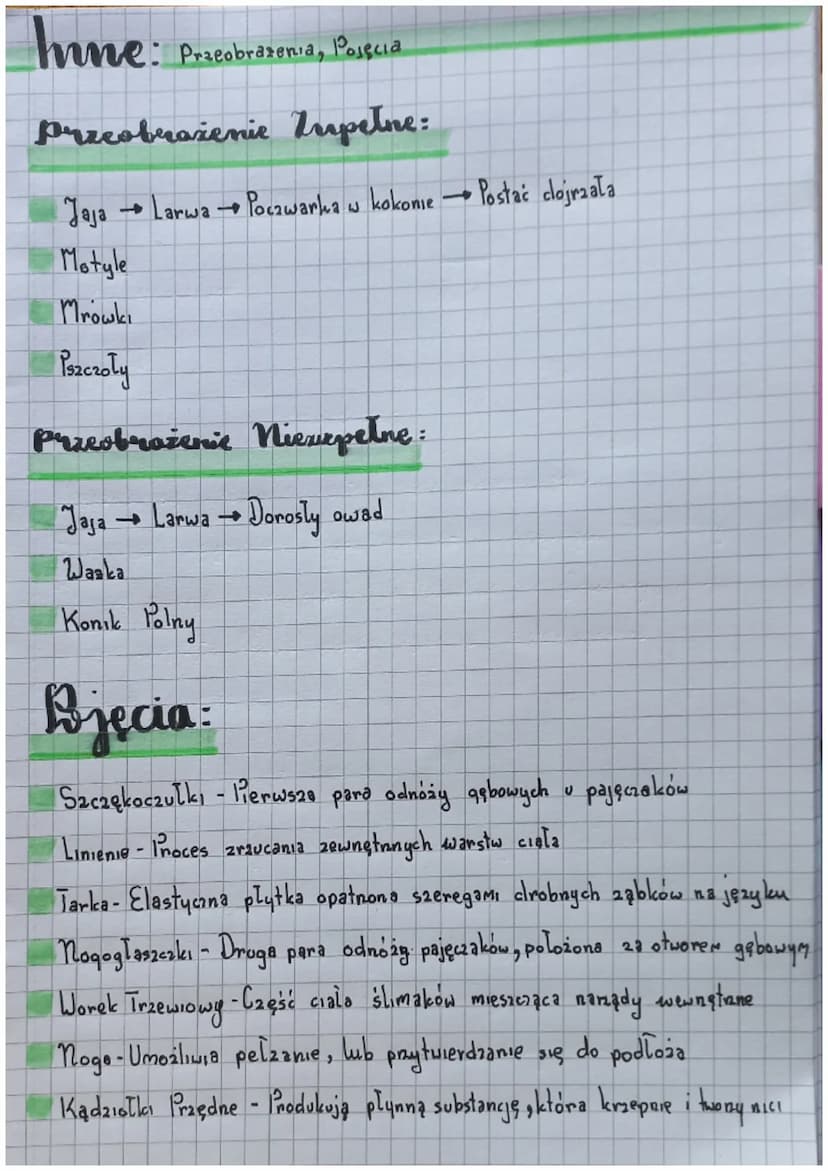 Inne: Przeobrażenia, Pojęcia
Przeobrażenie Zupełne:
Jaja → Larwa → Poczwarka w kokonie → Postać dojrzała
Motyle
Mrówki
Pszczoły
Przeobrażenie Niezupełne:
Jaja → Larwa → Dorosły owad
Ważka
Konik Polny
Pojęcia:
Szczękoczułki - Pierwsza para odnóży gębowych u pajęczaków
Linienie - Proces zrzucania zewnętrznych warstw ciała
Tarka - Elastyczna płytka opatrzona szeregami drobnych ząbków na języku
Nogogłaszczki - Druga para odnóży pajęczaków, położona za otworem gębowym
Worek Trzewiowy - Część ciała ślimaków mieszcząca narządy wewnętrzne
Noga - Umożliwia pełzanie, lub przytwierdzanie się do podłoża
Kądziołki Przędne - Produkują płynną substancję, która krzepnie i tworzy nici